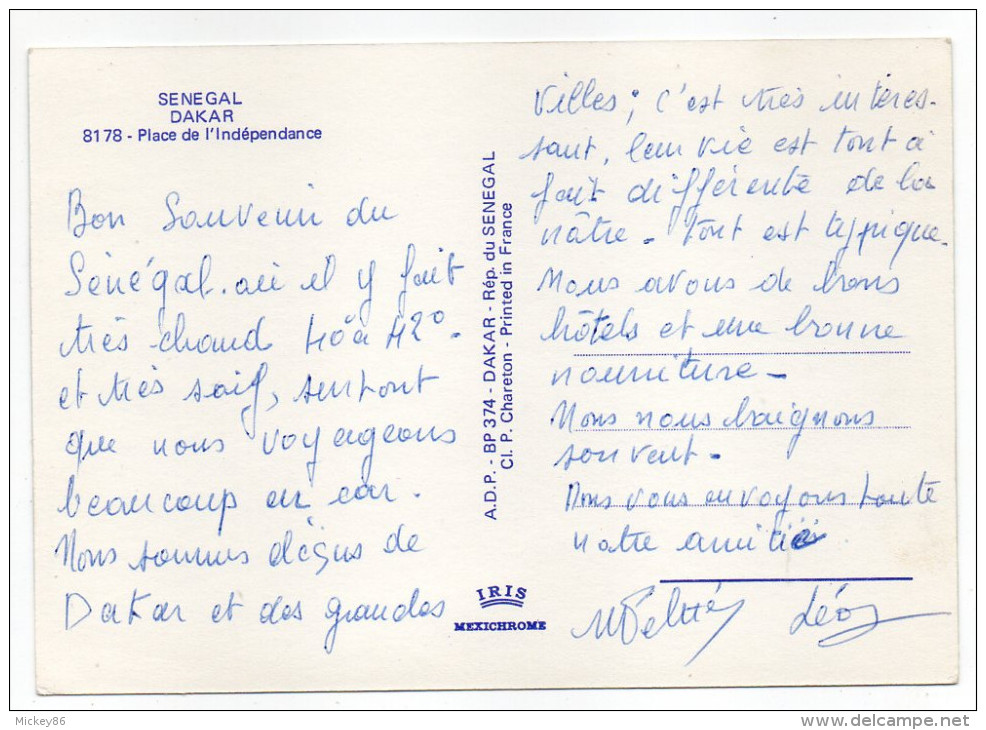 SENEGAL
DAKAR
8178 - Place de l'Indépendance
Bon Souvenir du
Sénégal. où il y fait
très chaud 40 à 42° -
et très soif, surtout
que nous voyageons
beaucoup en car.
Nous sommes déçus de
Dakar et des grandes
A.D.P. - BP 374 - DAKAR - Rép. du SENEGAL
Cl. P. Chareton - Printed in France
IRIS
MEXICHROME
villes ; c'est très intéres-
sant, leur vie est tout à
fait différente de la
nôtre - Tout est typique -
Nous avons de bons
hôtels et une bonne
nourriture -
Nous nous baignons
souvent -
Nous vous envoyons toute
notre amitié
Léo
Mickey86
www.delcampe.net